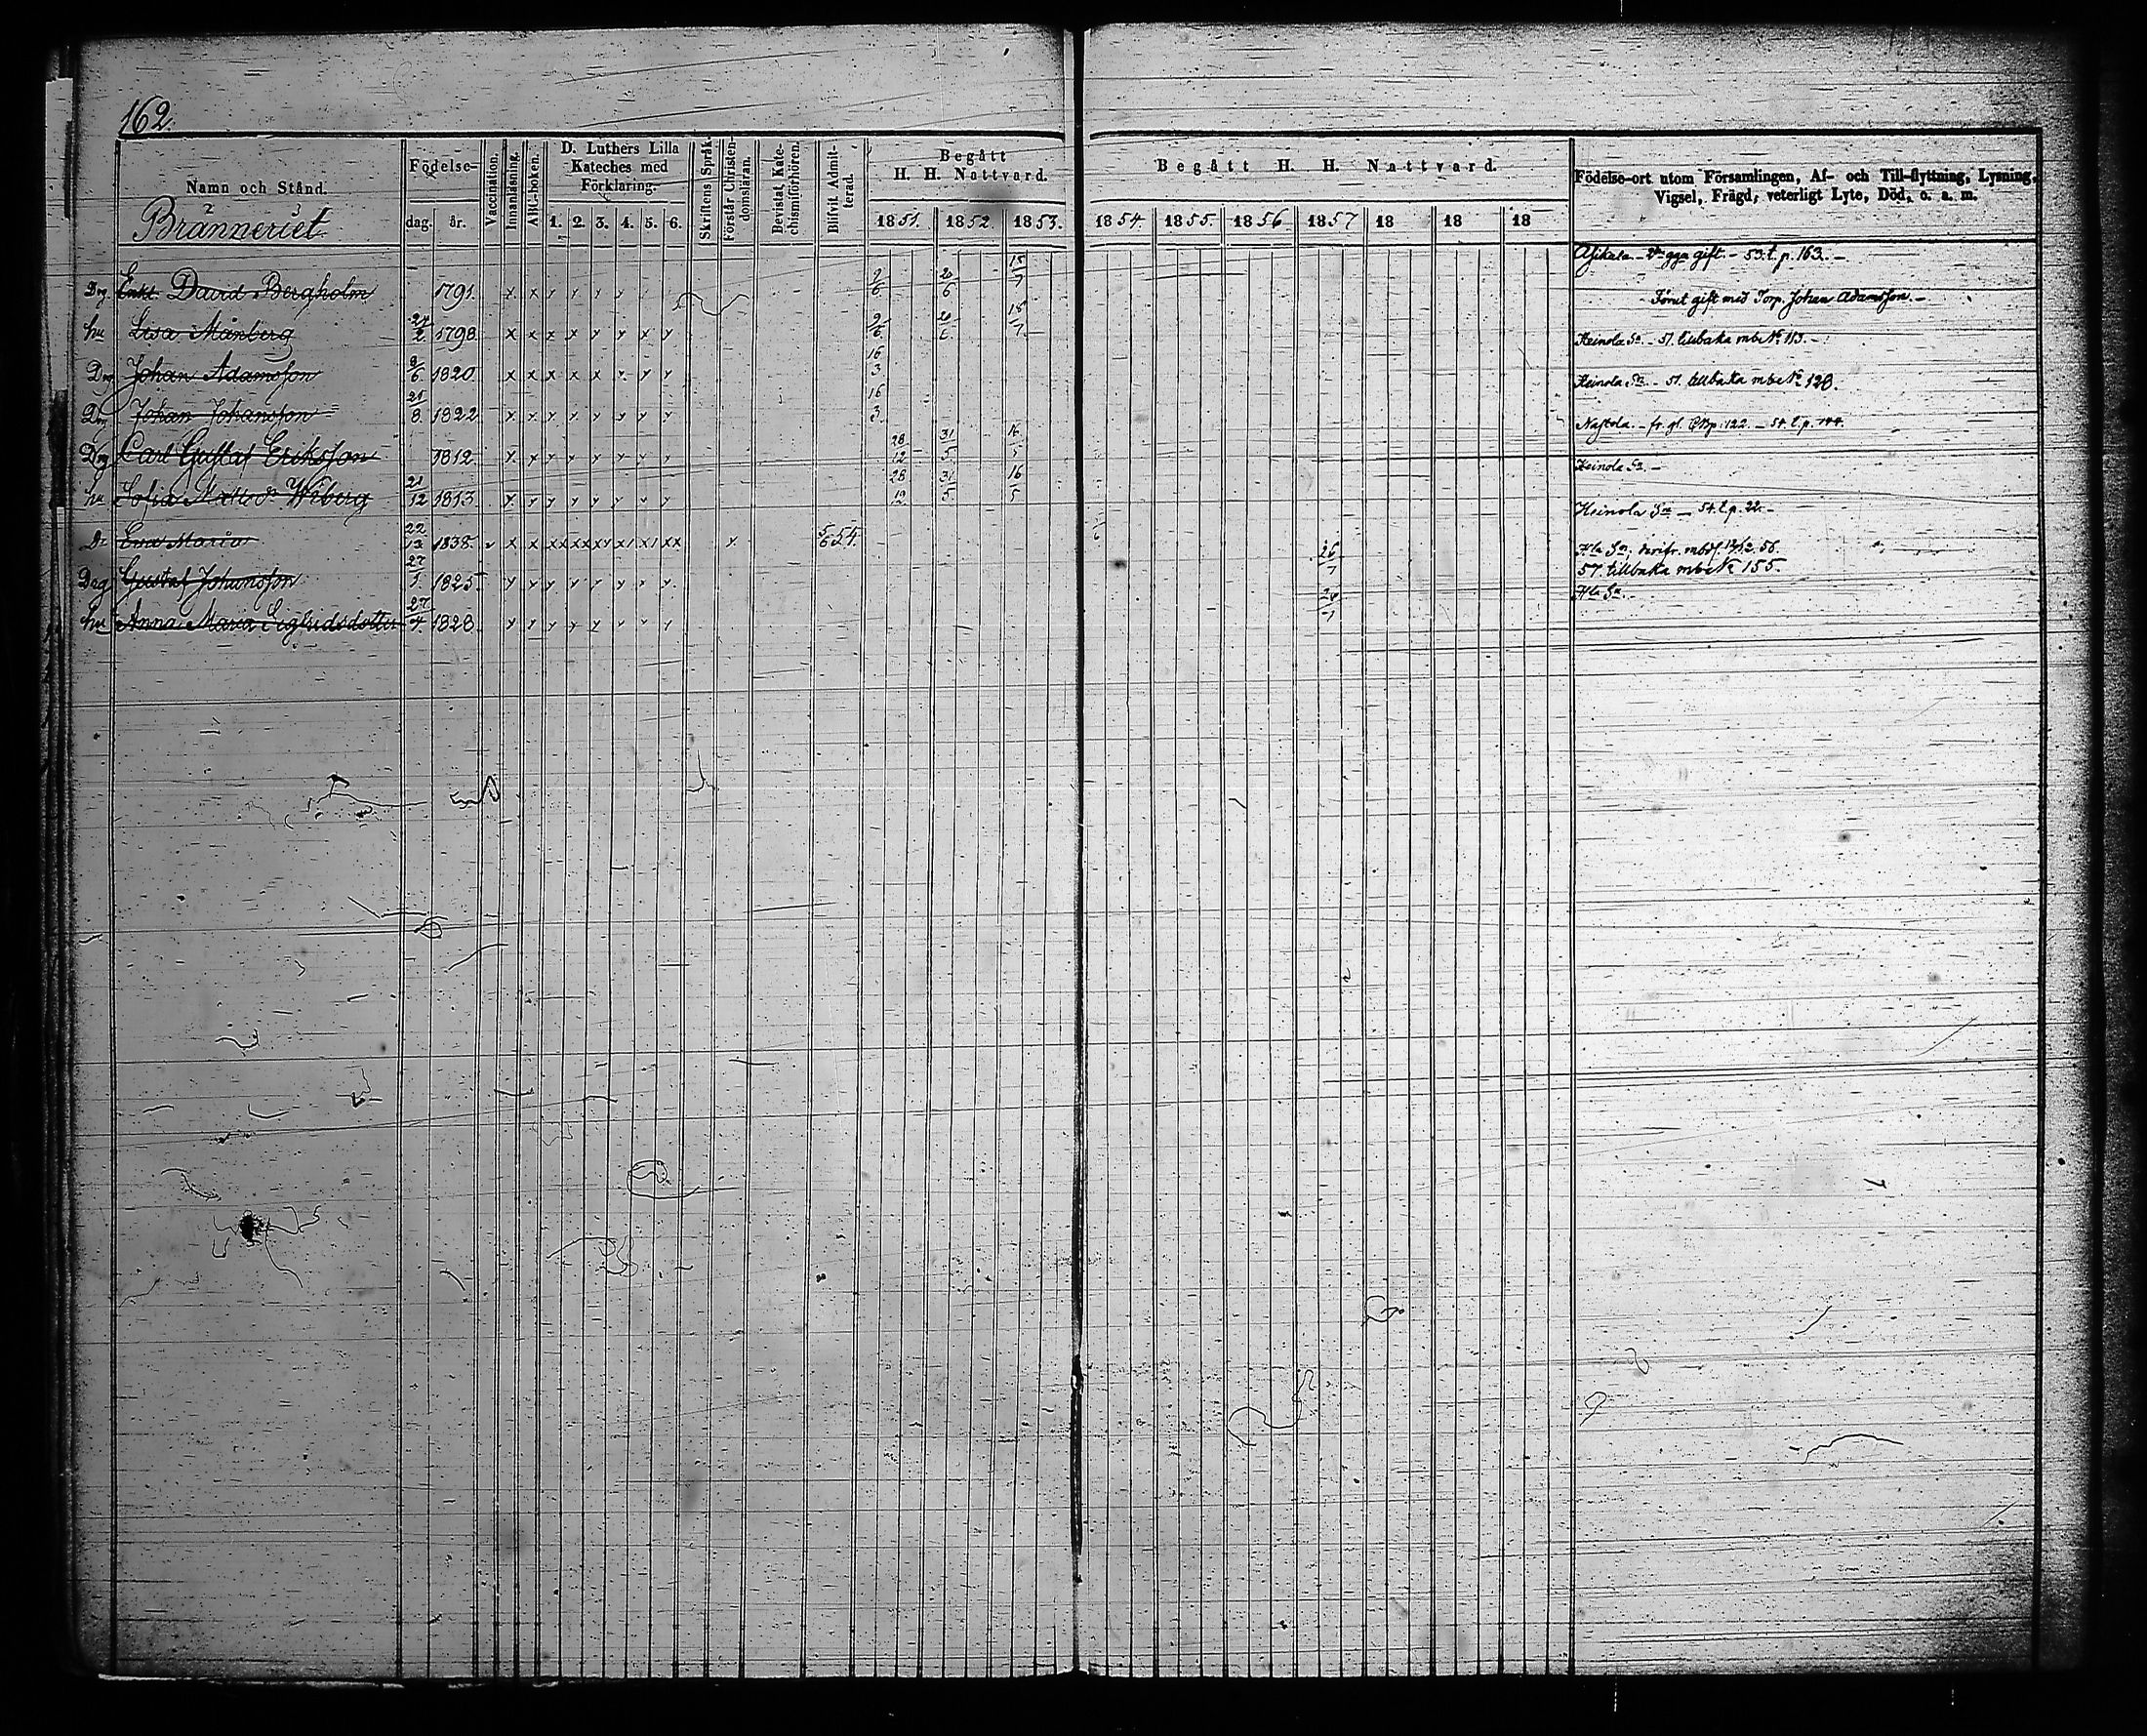 162.
Namn och Stånd.
Bränneriet
Födelse-
dag. år.
Vaccination.
Innanläsning.
ABC-boken.
D. Luthers Lilla
Kateches med
Förklaring.
1. 2. 3. 4. 5. 6.
Skriftens Språk.
Förstår Christen-
domsläran.
Bevistat Kate-
chismiförhören.
Blifvit Admit-
terad.
Begått
H. H. Nattvard.
1851. 1852. 1853.
Begått H. H. Nattvard.
1854. 1855. 1856 1857 18 18 18
Födelse-ort utom Församlingen, Af- och Till-flyttning, Lysning,
Vigsel, Frägd, veterligt Lyte, Död, o. s. m.
Drg Enkl. David Bergholm 1791. x x 2/6 20/6 15/7 Asikala gift. - 53. t. p. 163. -
hu Lisa Månberg 24/2 1798 x x x x y y x y 2/6 20/6 15/7 Förut gift med Torp. Johan Adamsson. -
Drg Johan Adamsson 8/6 1820 x x x x x y y y 16/3 Heinola Sn. - 51. tillbaka mbt No 113. -
Drg Johan Johansson 21/8 1822 16/3 Heinola Sn. - 51. tillbaka mbt No 128.
Drg Carl Gustaf Eriksson 1812. 28/12 31/5 16/5 Nastola. - fr. gl. p. 122. - 54. t. p. 144.
hu Sofia Matts dr Wiberg 21/12 1813 28/12 31/5 16/5 Heinola Sn. -
Dr Eva Maria 22/12 1838. v x x xx xx xy x1 x1 xx x 5/6 54. Heinola Sn - 54. t. p. 22. -
Drg Gustaf Johansson 27/5 1825 26/7 Hla Sn. 56.
57. tillbaka mbt No 155.
hu Anna Maria Sigfridsdotter 27/4 1828. 26/7 Hla Sn. -